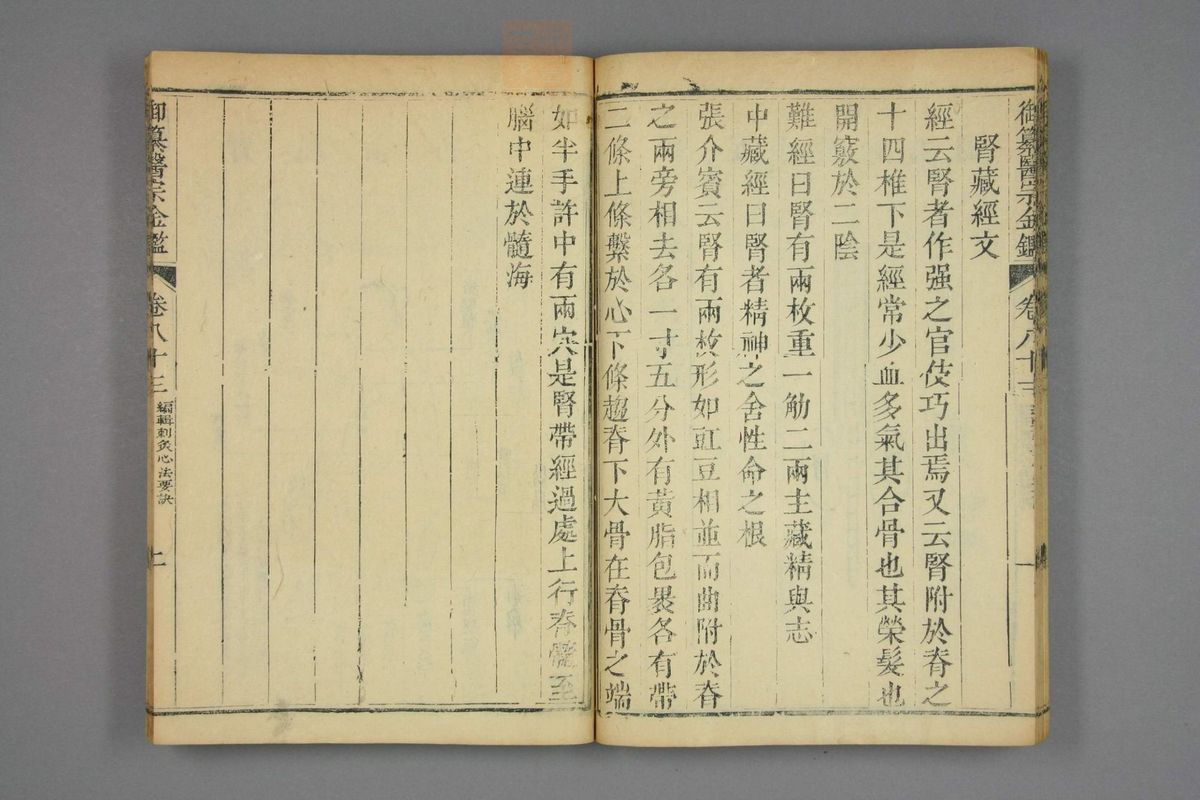 御纂醫宗金鑑
卷八十三
一
腎藏經文
經云腎者作强之官伎巧出焉又云腎附於脊之
十四椎下是經常少血多氣其合骨也其榮髮也
開竅於二陰
難經曰腎有兩枚重一觔二兩主藏精與志
中藏經曰腎者精神之舍性命之根
張介賓云腎有兩枚形如豇豆相並而曲附於脊
之兩旁相去各一寸五分外有黃脂包裹各有帶
二條上條繫於心下條趨脊下大骨在脊骨之端
如半手許中有兩穴是腎帶經過處上行脊髓至
腦中連於髓海
御纂醫宗金鑑
卷八十三
編輯刺灸心法要訣